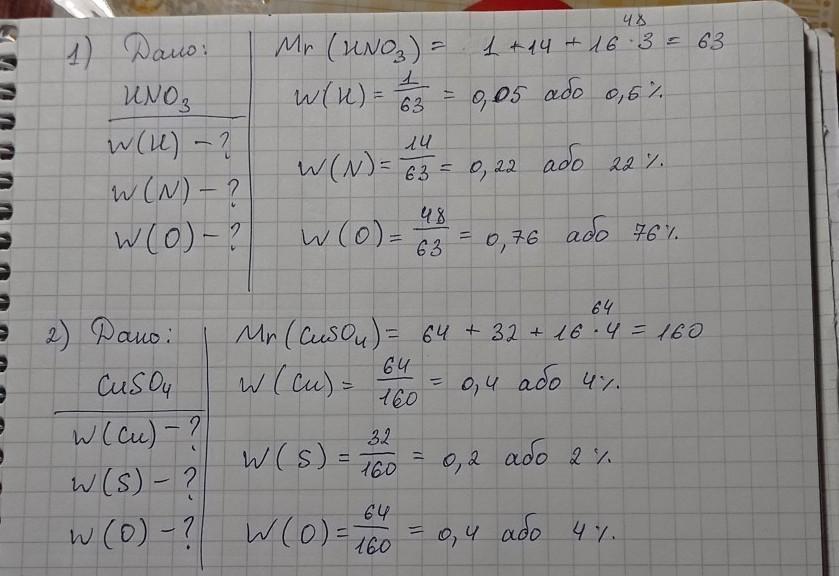 1) Дано: Mr (HNO3) = 1 + 14 + 16 · 3 = 63
48
HNO3 W(H) = 1/63 = 0,05 або 0,5%
W(H) - ?
W(N) = 14/63 = 0,22 або 22%
W(N) - ?
W(O) - ? W(O) = 48/63 = 0,76 або 76%
2) Дано: Mr (CuSO4) = 64 + 32 + 16 · 4 = 160
64
CuSO4 W(Cu) = 64/160 = 0,4 або 4%
W(Cu) - ?
W(S) = 32/160 = 0,2 або 2%
W(S) - ?
W(O) - ? W(O) = 64/160 = 0,4 або 4%